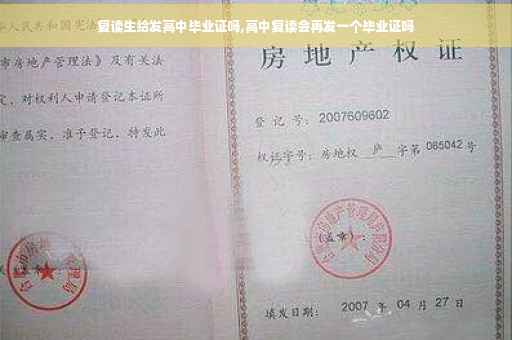 复读生给发高中毕业证吗,高中复读会再发一个毕业证吗
华人民共和国宪法
市房地产管理法》及有关法
定，对权利人申请登记本证所
审查属实，准予登记，特发此
房地产权证
登记号：2007609602
权证字号：房地权 庐 字第 065042 号
(盖章)：
填发日期： 2007 年 04 月 27 日